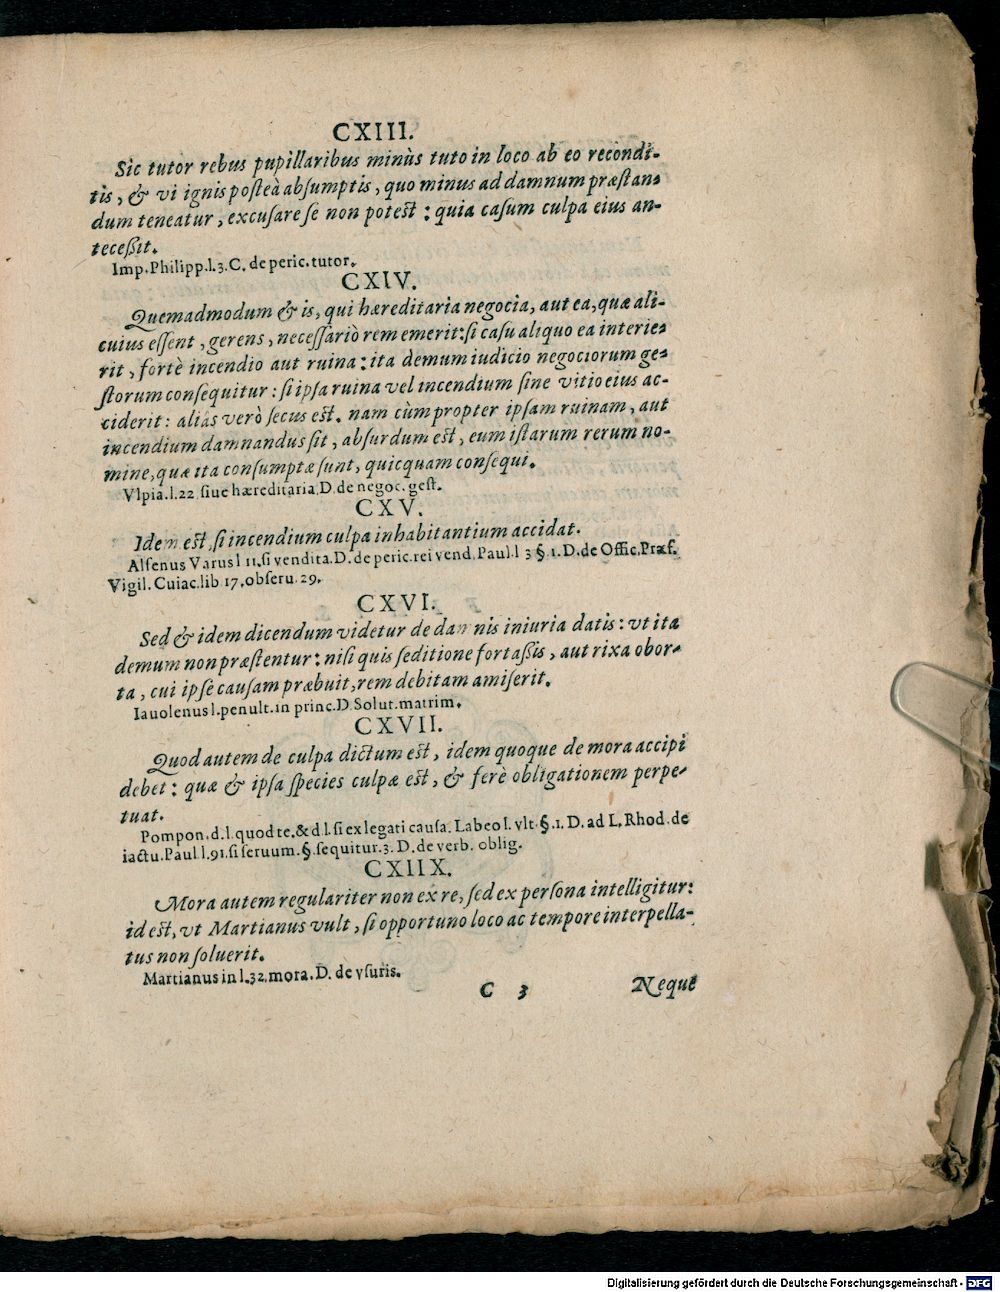 CXIII.
Sic tutor rebus pupillaribus minùs tuto in loco ab eo recondi-
tis, & vi ignis posteà absumptis, quo minus ad damnum præstan-
dum teneatur, excusare se non potest: quia casum culpa eius an-
tecessit.
Imp. Philipp. l. 3. C. de peric. tutor.
CXIV.
Quemadmodum & is, qui hæreditaria negocia, aut ea, quæ ali-
cuius essent, gerens, necessariò rem emerit: si casu aliquo ea interie-
rit, fortè incendio aut ruina: ita demum iudicio negociorum ge-
storum consequitur: si ipsa ruina vel incendium sine vitio eius ac-
ciderit: aliàs verò secus est. nam cùm propter ipsam ruinam, aut
incendium damnandus sit, absurdum est, eum istarum rerum no-
mine, quæ ita consumptæ sunt, quicquam consequi.
Vlpia. l. 22. siue hæreditaria. D. de negoc. gest.
CXV.
Idem est, si incendium culpa inhabitantium accidat.
Alfenus Varus l 11. si vendita. D. de peric. rei vend. Paul. l 3 §. 1. D. de Offic. Præf.
Vigil. Cuiac. lib 17. obseru. 29.
CXVI.
Sed & idem dicendum videtur de damnis iniuria datis: vt ita
demum non præstentur: nisi quis seditione fortassis, aut rixa obor-
ta, cui ipse causam præbuit, rem debitam amiserit.
Iauolenus l. penult. in princ. D. Solut. matrim.
CXVII.
Quod autem de culpa dictum est, idem quoque de mora accipi
debet: quæ & ipsa species culpæ est, & ferè obligationem perpe-
tuat.
Pompon. d. l. quod te. & d. l. si ex legati causa. Labeo l. vlt. §. 1. D. ad L. Rhod. de
iactu. Paul l. 91. si seruum. §. sequitur. 3. D. de verb. oblig.
CXIIX.
Mora autem regulariter non ex re, sed ex persona intelligitur:
id est, vt Martianus vult, si opportuno loco ac tempore interpella-
tus non soluerit.
Martianus in l. 32. mora. D. de vsuris.
C 3 Neque
Digitalisierung gefördert durch die Deutsche Forschungsgemeinschaft - DFG